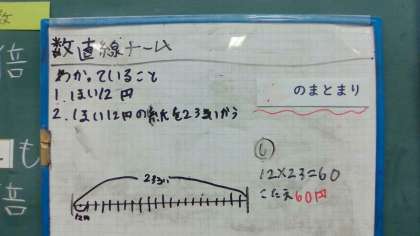 数直線チーム
わかっていること
1. 1まい12円
2. 1まい12円の紙を23まいかう
のまとまり
し
12×23=60
こたえ60円
23まい
12円
倍
も
倍